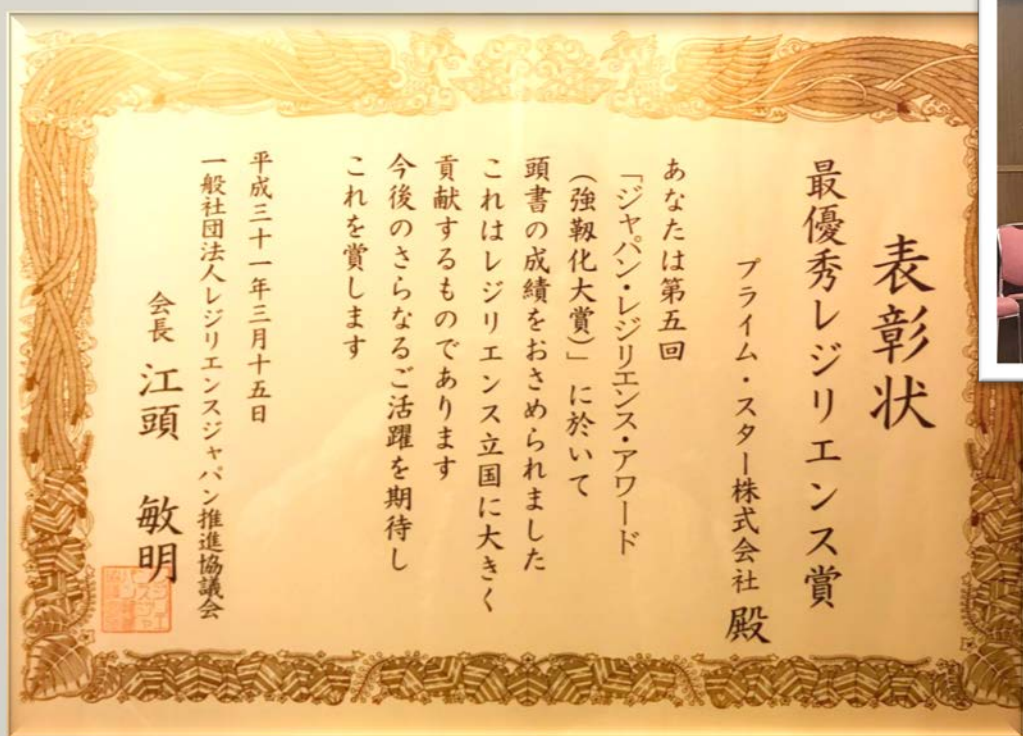 表彰状
最優秀レジリエンス賞
プライム・スター株式会社 殿
あなたは第五回
「ジャパン・レジリエンス・アワード
(強靱化大賞)」に於いて
頭書の成績をおさめられました
これはレジリエンス立国に大きく
貢献するものであります
今後のさらなるご活躍を期待し
これを賞します
平成三十一年三月十五日
一般社団法人レジリエンスジャパン推進協議会
会長 江頭 敏明